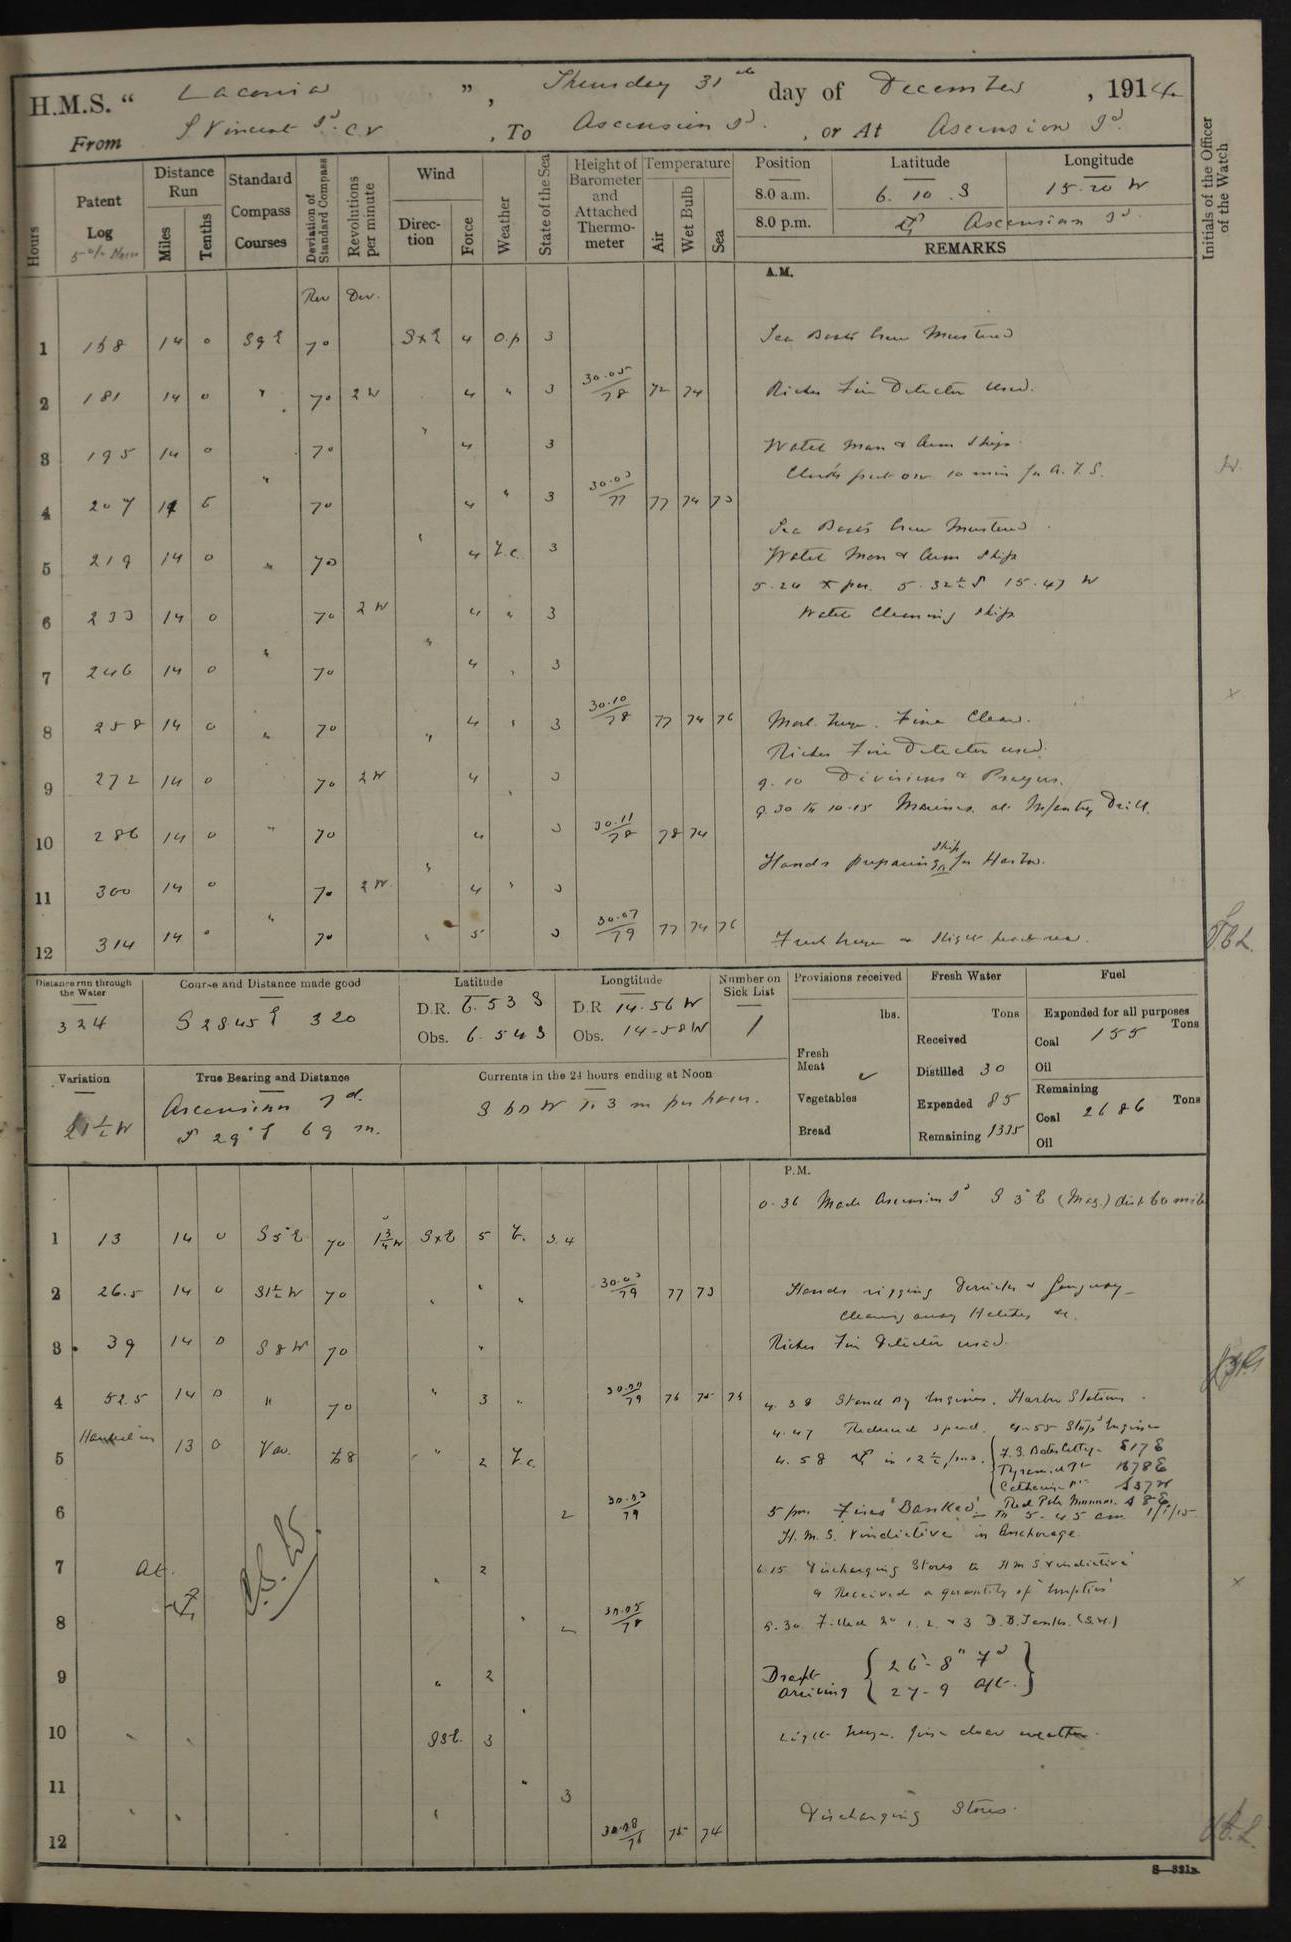 H.M.S. “ Laconia ”, Thursday 31st day of December, 1914
From S Vincent Id. C.V , To Ascension Id. , or At Ascension Id.
Hours
Patent Log
Distance Run
Miles
Tenths
Standard Compass Courses
Deviation of Standard Compass
Revolutions per minute
Wind
Direction
Force
Weather
State of the Sea
Height of Barometer and Attached Thermometer
Temperature
Air
Wet Bulb
Sea
Position
Latitude
Longitude
8.0 a.m. 6. 10 . S 15. 20 W
8.0 p.m. Ascension Id.
REMARKS
Initials of the Officer of the Watch
A.M.
Rev Dev.
1 168 14 0 S 9 E 70 SxE 4 o.p 3 Sea Boats Crew Mustered
2 181 14 0 " 70 2 W 4 " 3 30.05/78 72 74 Riches Fire Detector Used.
3 195 14 0 70 " 4 3 Watch Man & Arm Ships
Clocks put on 10 min for A.T.S.
4 207 14 5 " 70 4 " 3 30.03/77 77 74 73
Sea Boats Crew Mustered
5 219 14 0 " 70 4 b.c. 3 Watch Man & Arm Ships
5.24 X pn. 5.32½ S 15.47 W
6 233 14 0 70 2 W 4 " 3 Watch Cleaning Ship
7 246 14 0 " 70 " 4 " 3
8 258 14 0 " 70 " 4 " 3 30.10/78 77 74 76 Mod. breeze. Fine Clear.
Riches Fire Detector used.
9 272 14 0 70 2 W 4 " 3 9.10 Divisions & Prayers.
9.30 to 10.15 Marines at Infantry Drill.
10 286 14 0 " 70 4 3 30.11/78 78 74
Hands preparing ship for Harbour.
11 300 14 0 70 2 W " 4 " 3
12 314 14 0 " 70 " 5 3 30.07/79 77 74 76 Fresh breeze & slight head sea.
Distance run through the Water
324
Course and Distance made good
S 28 45 E 320
Latitude
D.R. 6. 53 S
Obs. 6. 54 S
Longtitude
D.R 14.56 W
Obs. 14-58 W
Number on Sick List
1
Provisions received
lbs.
Fresh Meat
Vegetables
Bread
Fresh Water
Tons
Received
Distilled 30
Expended 85
Remaining 1335
Fuel
Exponded for all purposes
Coal 155 Tons
Oil
Remaining
Coal 2686 Tons
Oil
Variation
21½ W
True Bearing and Distance
Ascension Id.
S 29° E 69 m.
Currents in the 24 hours ending at Noon
S 60 W
P.M.
0.36 Made Ascension Id S 3° E (Mag.) dist 60 mile
1 13 14 0 S 5° E 70 1¾ W SxE 5 b. 3.4
2 26.5 14 0 S 1½ W 70 " " " 30.03/79 77 73 Hands rigging Derricks & Gangway
Clearing away Hatches &c.
3 39 14 0 S 8 W 70 " Riches Fire Detector used.
4 52.5 14 0 " 70 " 3 " 30.00/79 76 75 75 4.38 Stand By Engines. Harbour Stations.
4.47 Reduced speed. 4-55 Stopd Engines
5 Hauled in 13 0 Var. 68 " 2 b.c. 4.58 in 12½ fms.
S 17 E
S 37 W
6 2 30.03/79 5 pm Fires "Banked" Red Pole S 8 E
to 5-45 am 1/1/15
H.M.S. Vindictive in Anchorage
7 At " 2 6.15 Discharging Stores to HMS "Vindictive"
& Received a quantity of "Empties"
8 " 30.05/78 5.30 Filled No 1, 2 & 3 D.B. Tanks. (S.W.)
9 " 2 Draft arriving { 26'-8" Fd
27-9 Aft. }
10 SSE. 3 Light breeze. fine clear weather.
11 " 3
Discharging Stores.
12 " 30.08/76 75 74
S—321B.